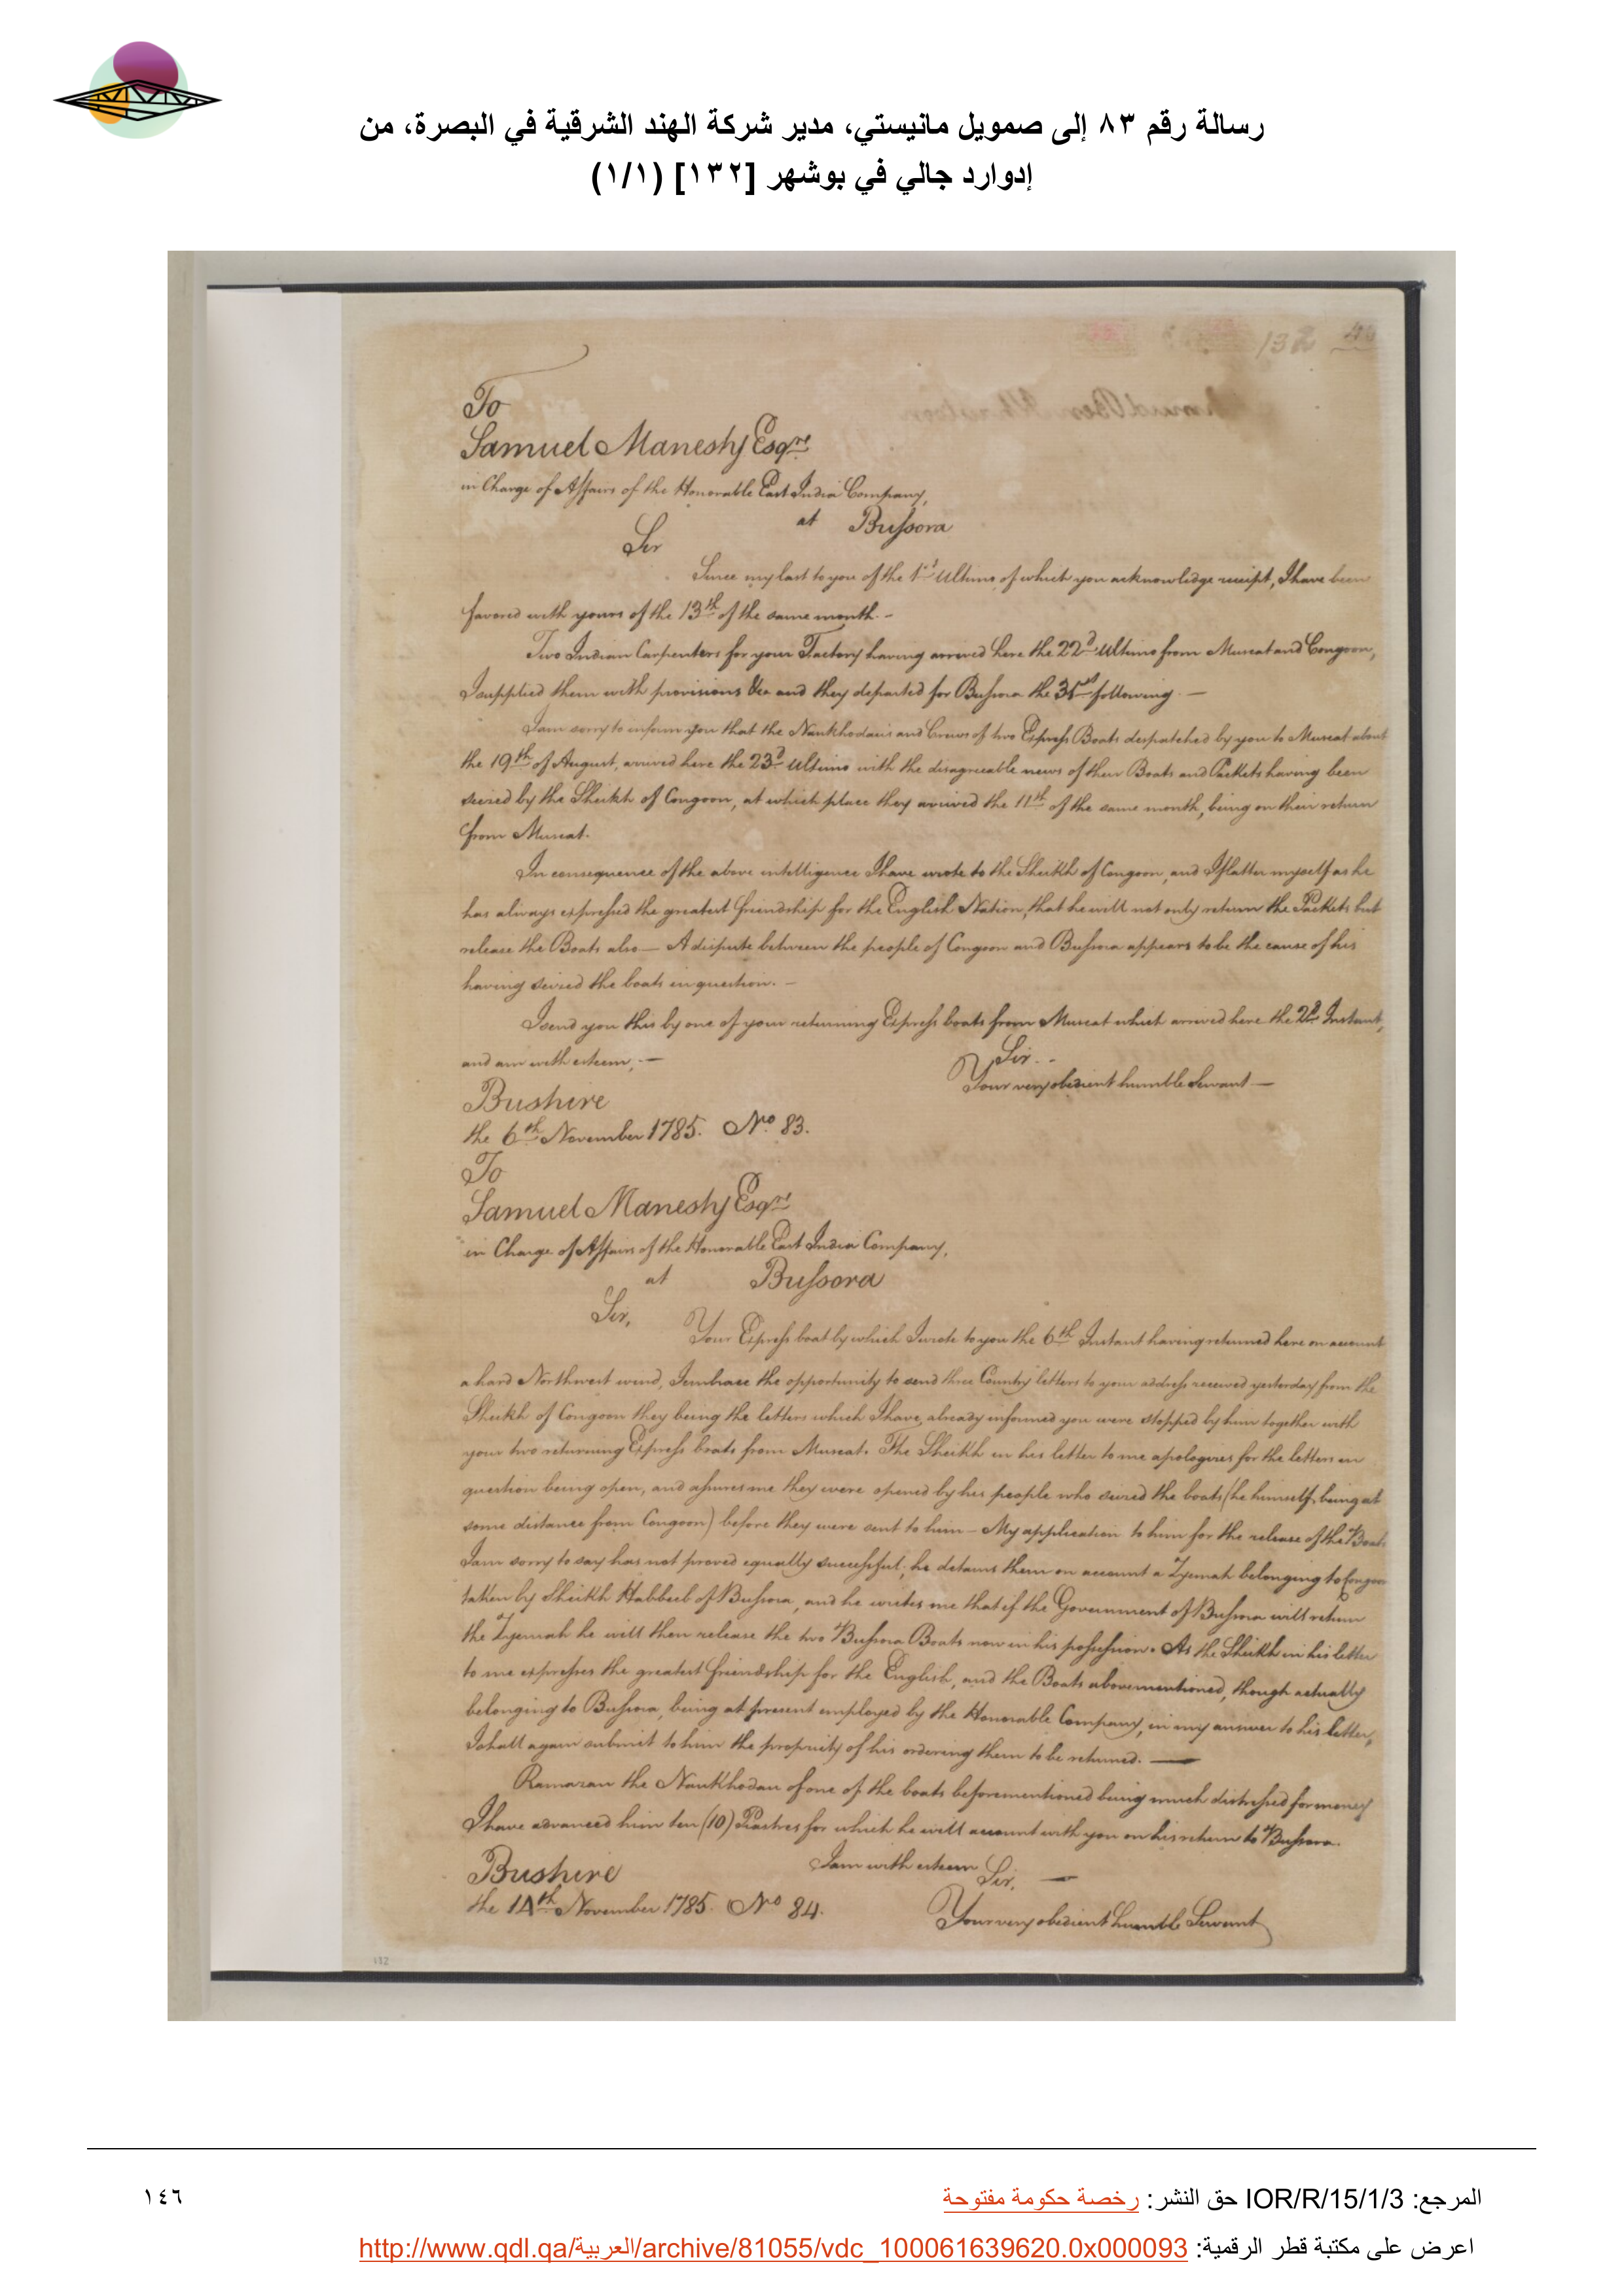 رسالة رقم ٨٣ إلى صمويل مانيستي، مدير شركة الهند الشرقية في البصرة، من
إدوارد جالي في بوشهر [١٣٢] (١/١)
132
To
Samuel Manesty Esqre
in Charge of Affairs of the Honorable East India Company,
at Bussora
Sir
Since my last to you of the 1st Ultimo of which you acknowledge receipt, I have been
favored with yours of the 13th of the same month. -
Two Indian Carpenters for your Factory having arrived here the 22d Ultimo from Muscat and Congoon,
I supplied them with provisions &ca and they departed for Bussora the 31st following. —
I am sorry to inform you that the Nankhodaus and Crews of two Express Boats despatched by you to Muscat about
the 19th of August, arrived here the 23d Ultimo with the disagreeable news of their Boats and Packets having been
seized by the Sheikh of Congoon, at which place they arrived the 11th of the same month, being on their return
from Muscat.
In consequence of the above intelligence I have wrote to the Sheikh of Congoon, and I flatter myself as he
has always expressed the greatest friendship for the English Nation, that he will not only return the Packets but
release the Boats also — A dispute between the people of Congoon and Bussora appears to be the cause of his
having seized the boats in question. -
I send you this by one of your returning Express boats from Muscat which arrived here the 2d Instant,
and am with esteem, —
Sir. -
Your very obedient humble Servant —
Bushire
the 6th November 1785. No. 83.
To
Samuel Manesty Esqre
in Charge of Affairs of the Honorable East India Company,
at Bussora
Sir,
Your Express boat by which I wrote to you the 6th Instant having returned here on account
a hard Northwest wind, I embrace the opportunity to send three Country letters to your address received yesterday from the
Sheikh of Congoon they being the letters which I have already informed you were stopped by him together with
your two returning Express boats from Muscat. The Sheikh in his letter to me apologizes for the letters in
question being open, and assures me they were opened by his people who seized the boats (he himself being at
some distance from Congoon) before they were sent to him - My application to him for the release of the Boats
I am sorry to say has not proved equally successful; he detains them on account a Zyemah belonging to Congoon
taken by Sheikh Habbeeb of Bussora, and he writes me that if the Government of Bussora will return
the Zyemah he will then release the two Bussora Boats now in his possession. As the Sheikh in his letter
to me expresses the greatest friendship for the English, and the Boats abovementioned, though actually
belonging to Bussora, being at present employed by the Honorable Company, in my answer to his letter,
I shall again submit to him the propriety of his ordering them to be returned. —
Ramazan the Nankhodau of one of the boats beforementioned being much distressed for money
I have advanced him ten (10) Piastres for which he will account with you on his return to Bussora.
I am with esteem
Sir, —
Bushire
the 14th November 1785. No 84.
Your very obedient humble Servant
132
المرجع: IOR/R/15/1/3 حق النشر: رخصة حكومة مفتوحة
١٤٦
اعرض على مكتبة قطر الرقمية: http://www.qdl.qa/العربية/archive/81055/vdc_100061639620.0x000093